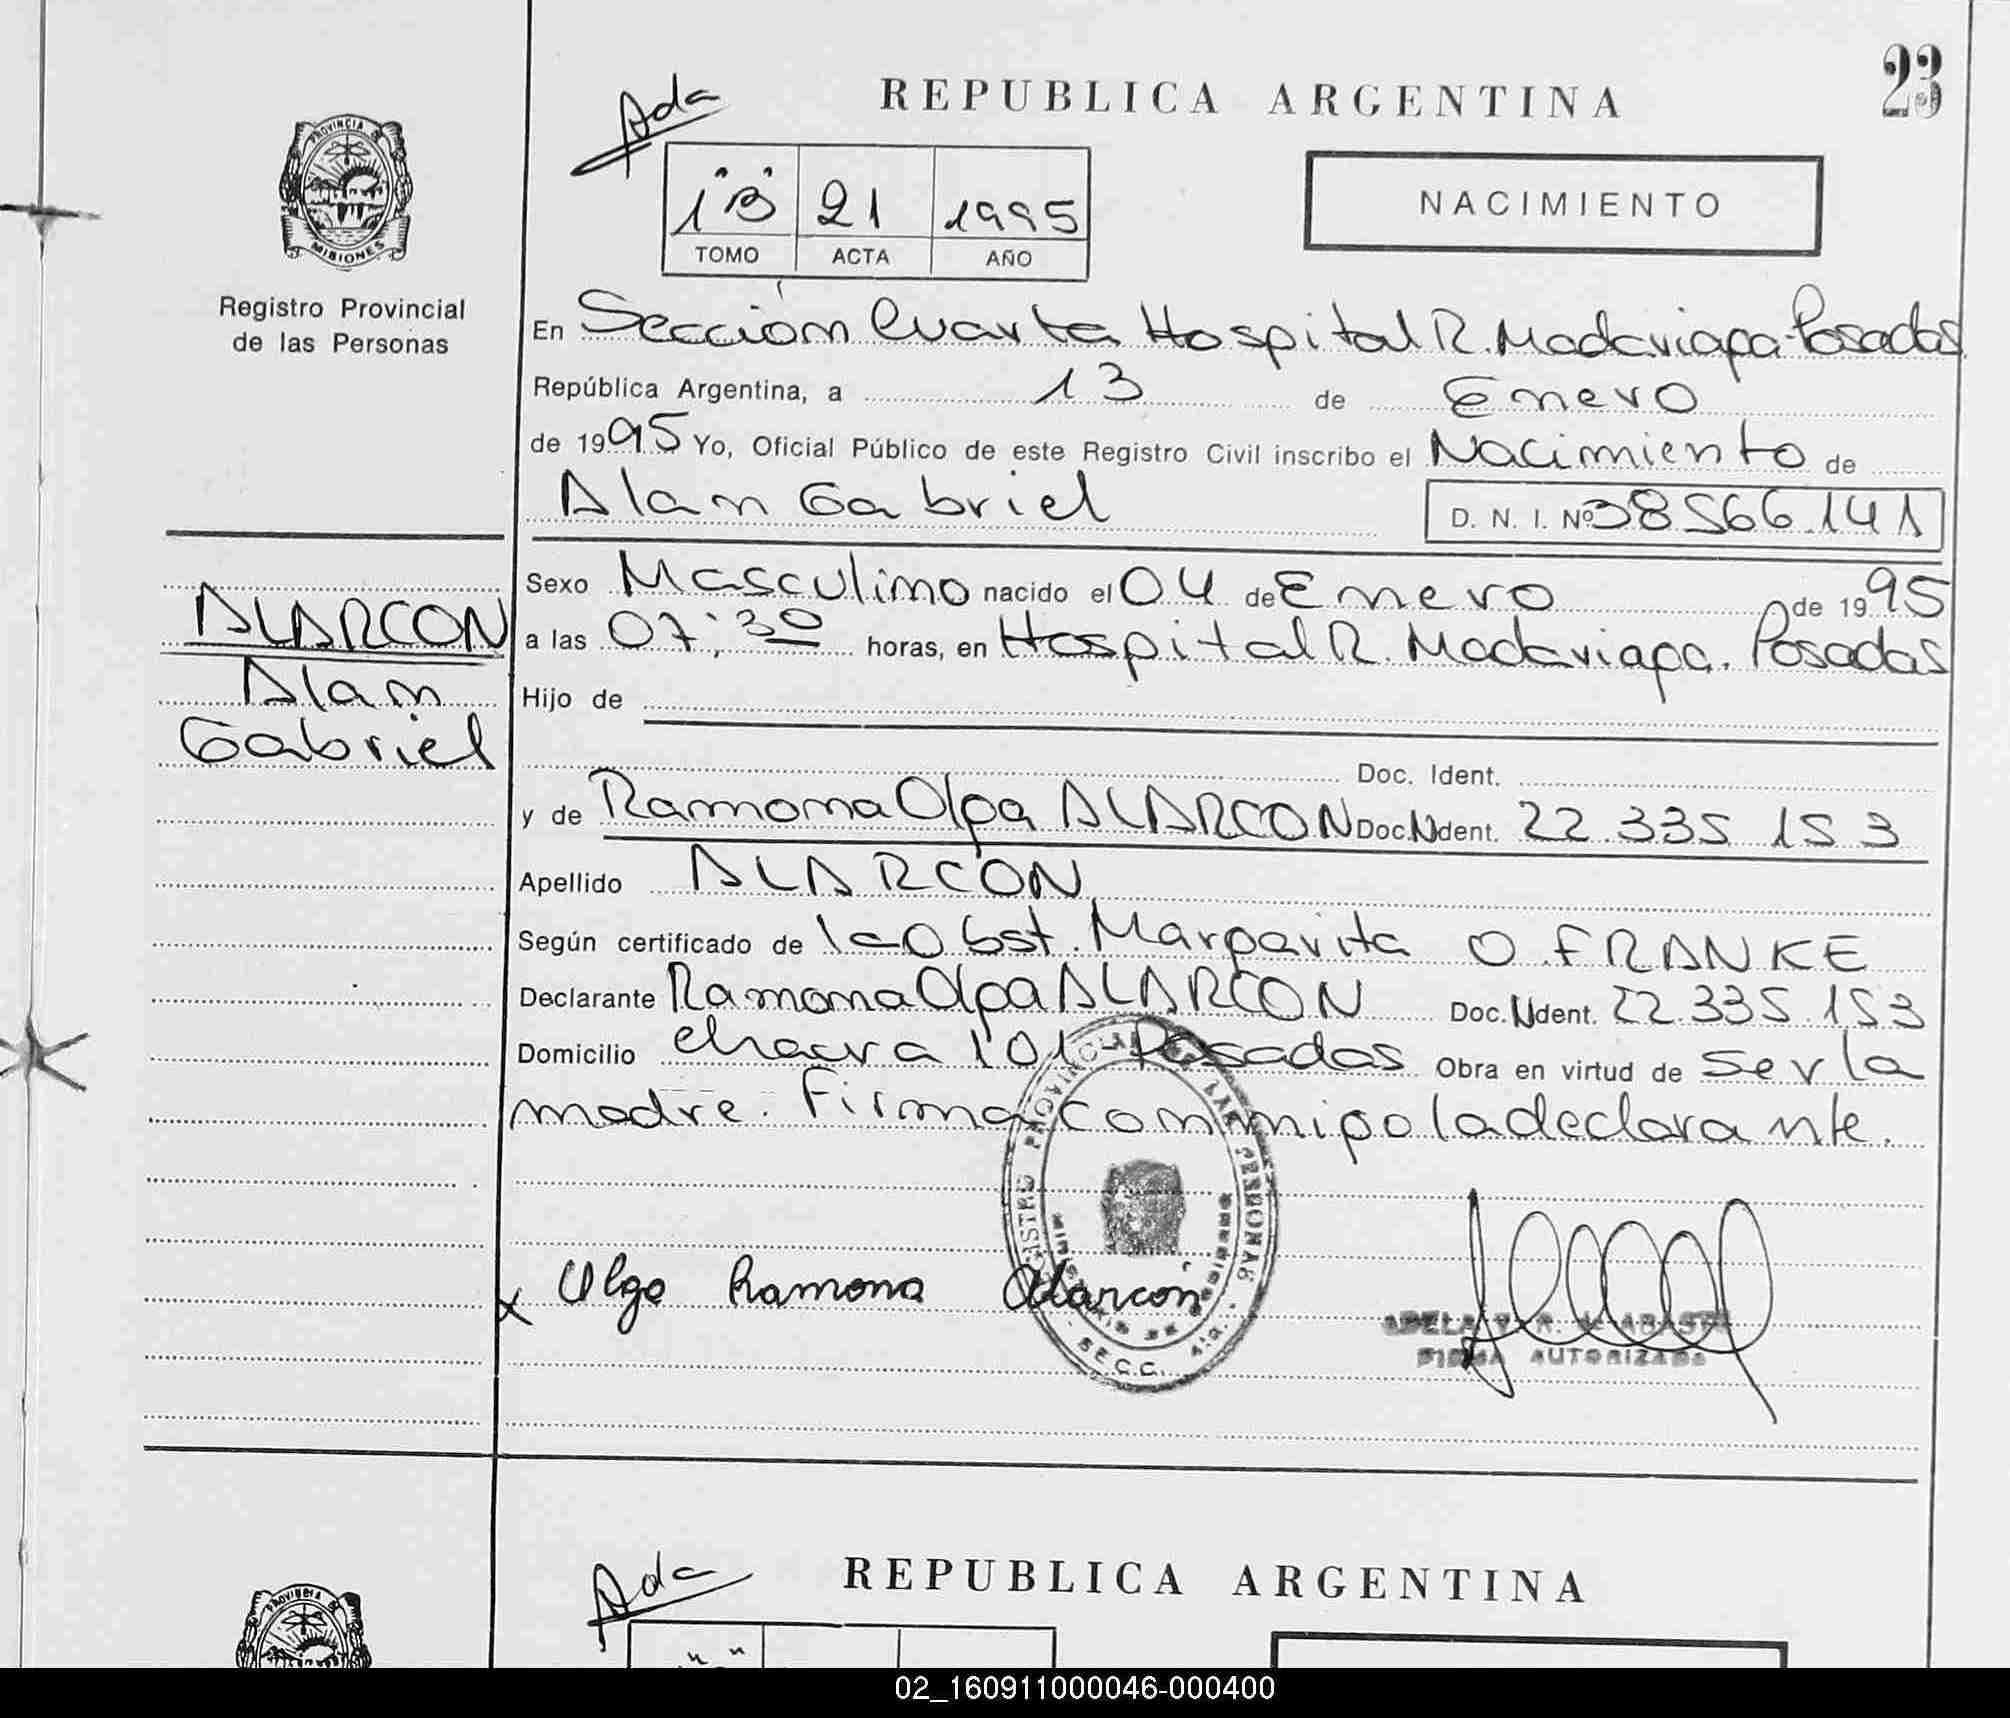 23
REPUBLICA ARGENTINA
Ada
1 "B" 21 1995
TOMO ACTA AÑO
NACIMIENTO
PROVINCIA DE
MISIONES
Registro Provincial
de las Personas
En Sección Cuarta Hospital R. Madariaga-Posadas
República Argentina, a 13 de Enero
de 1995 Yo, Oficial Público de este Registro Civil inscribo el Nacimiento de
Alan Gabriel D. N. I. Nº 38566.141
Sexo Masculino nacido el 04 de Enero de 1995
a las 07:30 horas, en Hospital R. Madariaga. Posadas
Hijo de
Doc. Ident.
y de Ramona Olga ALARCON Doc. Ident. 22.335.153
Apellido ALARCON
Según certificado de la Obst. Margarita O. FRANKE
Declarante Ramona Olga ALARCON Doc. Ident. 22.335.153
Domicilio chacra 101 Posadas Obra en virtud de ser la
madre. Firma conmigo la declarante.
ALARCON
Alan
Gabriel
x Olga Ramona Alarcon
SECC. 4ta.
FIRMA AUTORIZADA
Ada
REPUBLICA ARGENTINA
PROVINCIA
02_160911000046-000400